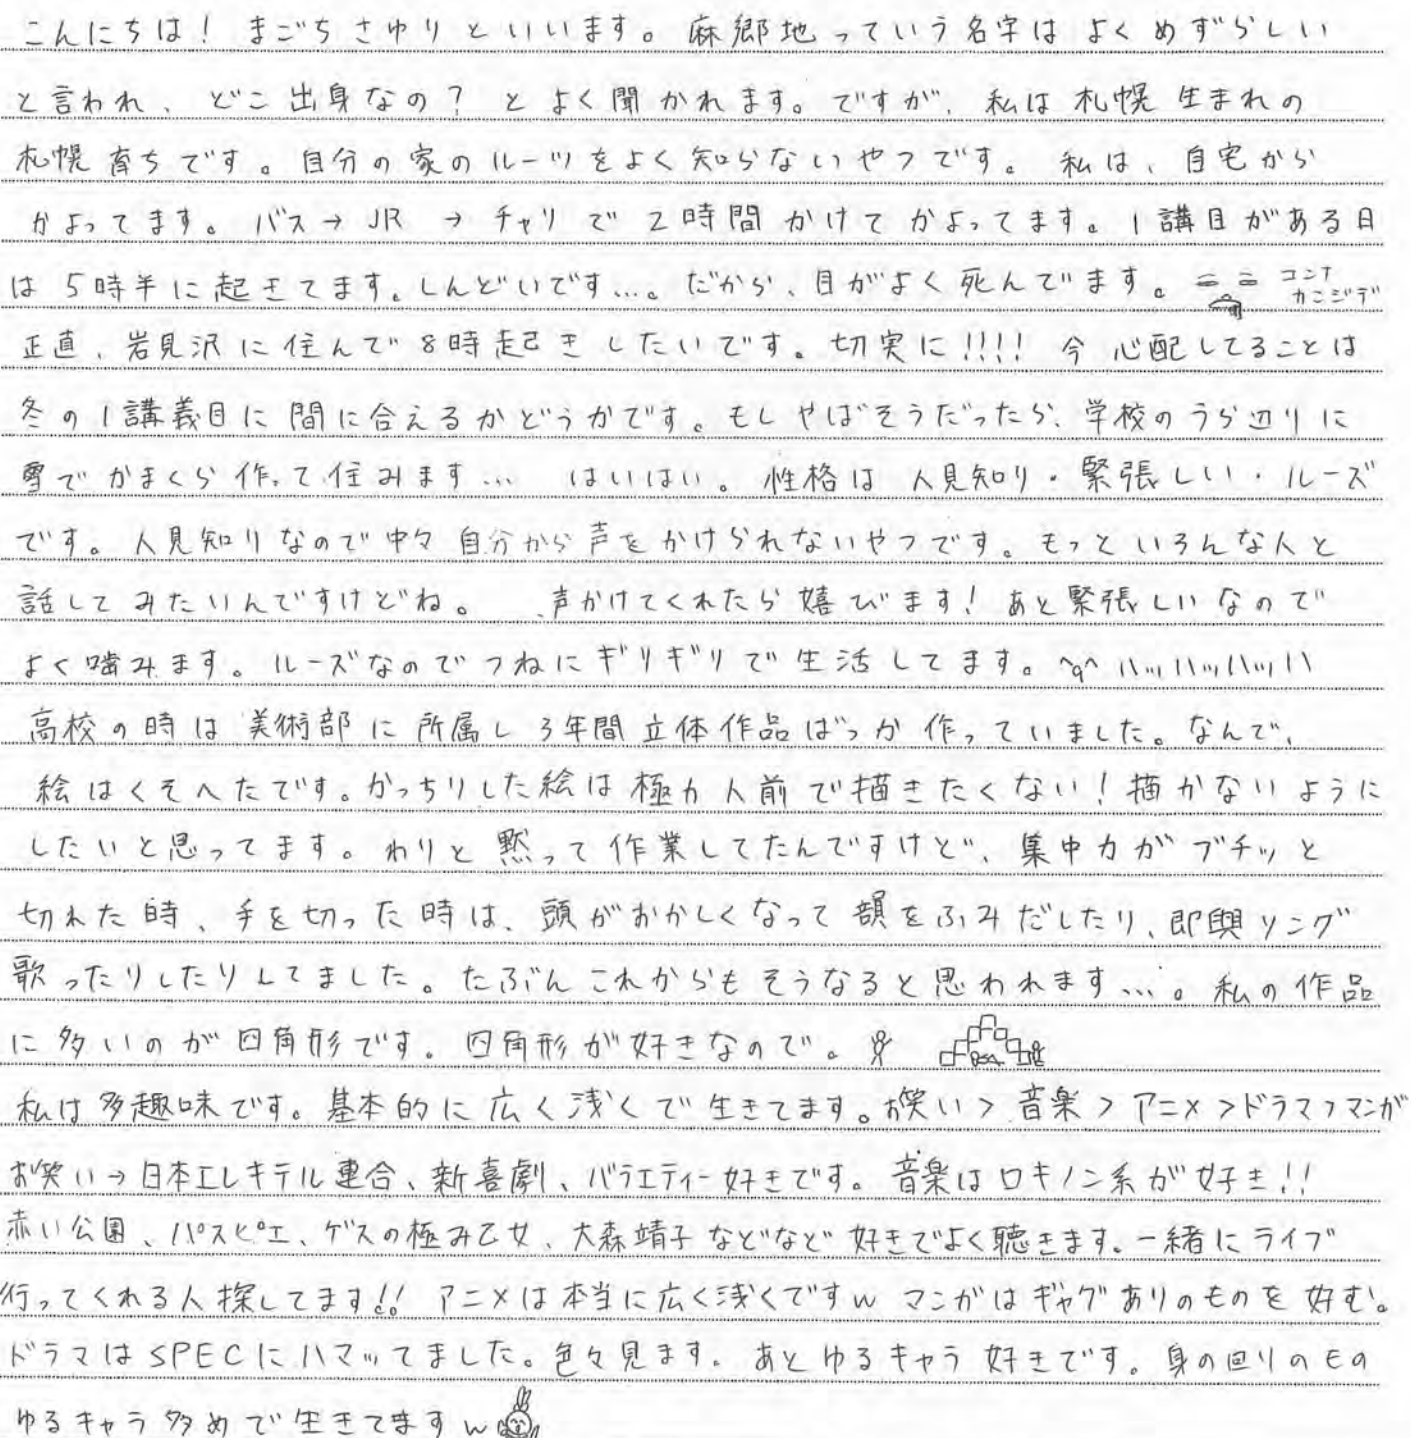 こんにちは！ まごちさゆりといいます。麻郷地っていう名字はよくめずらしい
と言われ、どこ出身なの？とよく聞かれます。ですが、私は札幌生まれの
札幌育ちです。自分の家のルーツをよく知らないやつです。私は、自宅から
かよってます。バス→JR →チャリで2時間かけてかよってます。1講目がある日
は5時半に起きてます。しんどいです…。だから、目がよく死んでます。 コンナ
カンジデ
正直、岩見沢に住んで8時起きしたいです。切実に!!!! 今心配してることは
冬の1講義目に間に合えるかどうかです。もしやばそうだったら、学校のうら辺りに
雪でかまくら作って住みます… はいはい。性格は人見知り・緊張しい・ルーズ
です。人見知りなので中々自分から声をかけられないやつです。もっといろんな人と
話してみたいんですけどね。 声かけてくれたら嬉びます！あと緊張しいなので
よく噛みます。ルーズなのでつねにギリギリで生活してます。^q^ ハッハッハッハ
高校の時は美術部に所属し3年間立体作品ばっか作っていました。なんで、
絵はくそへたです。かっちりした絵は極力人前で描きたくない！描かないように
したいと思ってます。わりと黙って作業してたんですけど、集中力がブチッと
切れた時、手を切った時は、頭がおかしくなって韻をふみだしたり、即興ソング
歌ったりしたりしてました。たぶんこれからもそうなると思われます…。私の作品
に多いのが四角形です。四角形が好きなので。
私は多趣味です。基本的に広く浅くで生きてます。お笑い>音楽>アニメ>ドラマ>マンガ
お笑い→日本エレキテル連合、新喜劇、バラエティー好きです。音楽はロキノン系が好き!!
赤い公園、パスピエ、ゲスの極み乙女、大森靖子などなど好きでよく聴きます。一緒にライブ
行ってくれる人探してます!! アニメは本当に広く浅くですw マンガはギャグありのものを好む。
ドラマはSPECにハマッてました。色々見ます。あとゆるキャラ好きです。身の回りのもの
ゆるキャラ多めで生きてますw